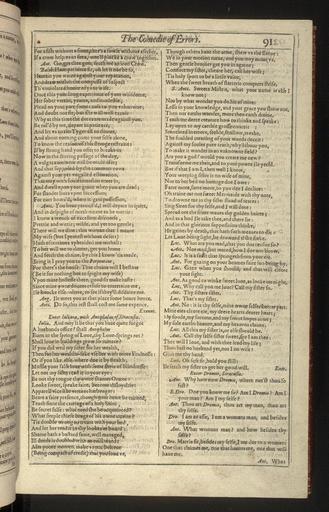 The Comedie of Errors. 91
For a fish without a finne, ther's a fowle without a fether,
If a crow help vs in sirra, wee'll plucke a crow together.
Ant. Go, get thee gon, fetch me an iron Crow.
Balth. Haue patience sir, oh let it not be so,
Heerin you warre against your reputation,
And draw within the compasse of suspect
Th'vnuiolated honor of your wife.
Once this your long experience of your wisedome,
Her sober vertue, yeares, and modestie,
Plead on your part some cause to you vnknowne;
And doubt not sir, but she will well excuse
Why at this time the dores are made against you.
Be rul'd by me, depart in patience,
And let vs to the Tyger all to dinner,
And about euening come your selfe alone,
To know the reason of this strange restraint:
If by strong hand you offer to breake in
Now in the stirring passage of the day,
A vulgar comment will be made of it;
And that supposed by the common rowt
Against your yet vngalled estimation,
That may with foule intrusion enter in,
And dwell vpon your graue when you are dead;
For slander liues vpon succession;
For euer hows'd, where it gets possession.
Anti. You haue preuail'd, I will depart in quiet,
And in despight of mirth meane to be merrie:
I know a wench of excellent discourse,
Prettie and wittie; wilde, and yet too gentle;
There will we dine: this woman that I meane
My wife (but I protest without desert)
Hath oftentimes vpbraided me withall:
To her will we to dinner, get you home
And fetch the chaine, by this I know 'tis made,
Bring it I pray you to the Porpentine,
For there's the house: That chaine will I bestow
(Be it for nothing but to spight my wife)
Vpon mine hostesse there, good sir make haste:
Since mine owne doores refuse to entertaine me,
Ile knocke else-where, to see if they'll disdaine me.
Ang. Ile meet you at that place some houre hence.
Anti. Do so, this iest shall cost me some expence.
Exeunt.
Enter Iuliana, with Antipholus of Siracusia.
Iulia. And may it be that you haue quite forgot
A husbands office? shall Antipholus
Euen in the spring of Loue, thy Loue-springs rot?
Shall loue in buildings grow so ruinate?
If you did wed my sister for her wealth,
Then for her wealths-sake vse her with more kindnesse:
Or if you like else-where doe it by stealth,
Muffle your false loue with some shew of blindnesse:
Let not my sister read it in your eye:
Be not thy tongue thy owne shames Orator:
Looke sweet, speake faire, become disloyaltie:
Apparell vice like vertues harbenger:
Beare a faire presence, though your heart be tainted,
Teach sinne the carriage of a holy Saint,
Be secret false: what need she be acquainted?
What simple thiefe brags of his owne attaine?
'Tis double wrong to truant with your bed,
And let her read it in thy lookes at boord:
Shame hath a bastard fame, well managed,
Ill deeds is doubled with an euill word:
Alas poore women, make vs not beleeue
(Being compact of credit) that you loue vs,
Though others haue the arme, shew vs the sleeue:
We in your motion turne, and you may moue vs.
Then gentle brother get you in againe;
Comfort my sister, cheere her, call her wife;
'Tis holy sport to be a little vaine,
When the sweet breath of flatterie conquers strife.
S. Anti. Sweete Mistris, what your name is else I
know not;
Nor by what wonder you do hit of mine:
Lesse in your knowledge, and your grace you show not,
Then our earths wonder, more then earth diuine.
Teach me deere creature how to thinke and speake:
Lay open to my earthie grosse conceit:
Smothred in errors, feeble, shallow, weake,
The foulded meaning of your words deceit:
Against my soules pure truth, why labour you,
To make it wander in an vnknowne field?
Are you a god? would you create me new?
Transforme me then, and to your powre Ile yeeld.
But if that I am I, then well I know,
Your weeping sister is no wife of mine,
Nor to her bed no homage doe I owe:
Farre more, farre more, to you doe I decline:
Oh traine me not sweet Mermaide with thy note,
To drowne me in thy sister floud of teares:
Sing Siren for thy selfe, and I will dote:
Spread ore the siluer waues thy golden haires;
And as a bud Ile take thee, and there lie:
And in that glorious supposition thinke,
He gaines by death, that hath such meanes to die:
Let Loue, being light, be drowned if she sinke.
Luc. What are you mad, that you doe reason so?
Ant. Not mad, but mated, how I doe not know.
Luc. It is a fault that springeth from your eie.
Ant. For gazing on your beames faire sun being by.
Luc. Gaze when you should, and that will cleere
your sight.
Ant. As good to winke sweet loue, as looke on night.
Luc. Why call you me loue? Call my sister so.
Ant. Thy sisters sister.
Luc. That's my sister.
Ant. No: it is thy selfe, mine owne selfes better part:
Mine eies cleere eie, my deere hearts deerer heart;
My foode, my fortune, and my sweet hopes aime;
My sole earths heauen, and my heauens claime.
Luc. All this my sister is, or else should be.
Ant. Call thy selfe sister sweet, for I am thee:
Thee will I loue, and with thee lead my life;
Thou hast no husband yet, nor I no wife:
Giue me thy hand.
Luc. Oh soft sir, hold you still:
Ile fetch my sister to get her good will. Exit.
Enter Dromio, Siracusia.
Ant. Why how now Dromio, where run'st thou so
fast?
S. Dro. Doe you know me sir? Am I Dromio? Am I
your man? Am I my selfe?
Ant. Thou art Dromio, thou art my man, thou art
thy selfe.
Dro. I am an asse, I am a womans man, and besides
my selfe.
Ant. What womans man? and how besides thy
selfe?
Dro. Marrie sir, besides my selfe, I am due to a woman:
One that claimes me, one that haunts me, one that will
haue me.
Ant. What